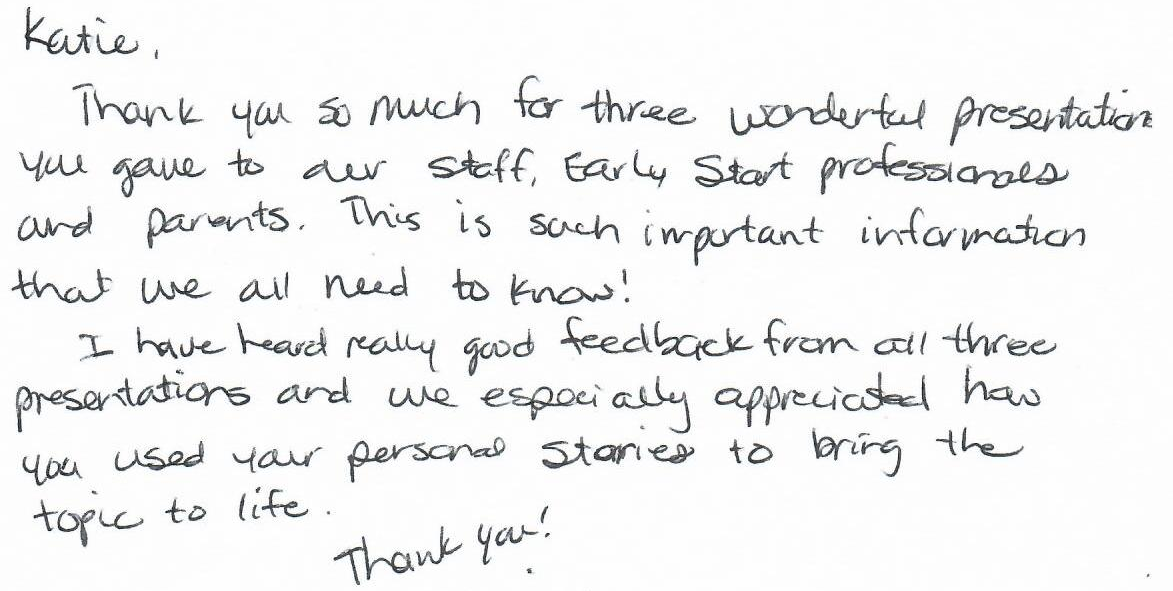 Katie,
Thank you so much for three wonderful presentation
you gave to our staff, Early Start professionals
and parents. This is such important information
that we all need to know!
I have heard really good feedback from all three
presentations and we especially appreciated how
you used your personal stories to bring the
topic to life.
Thank you!